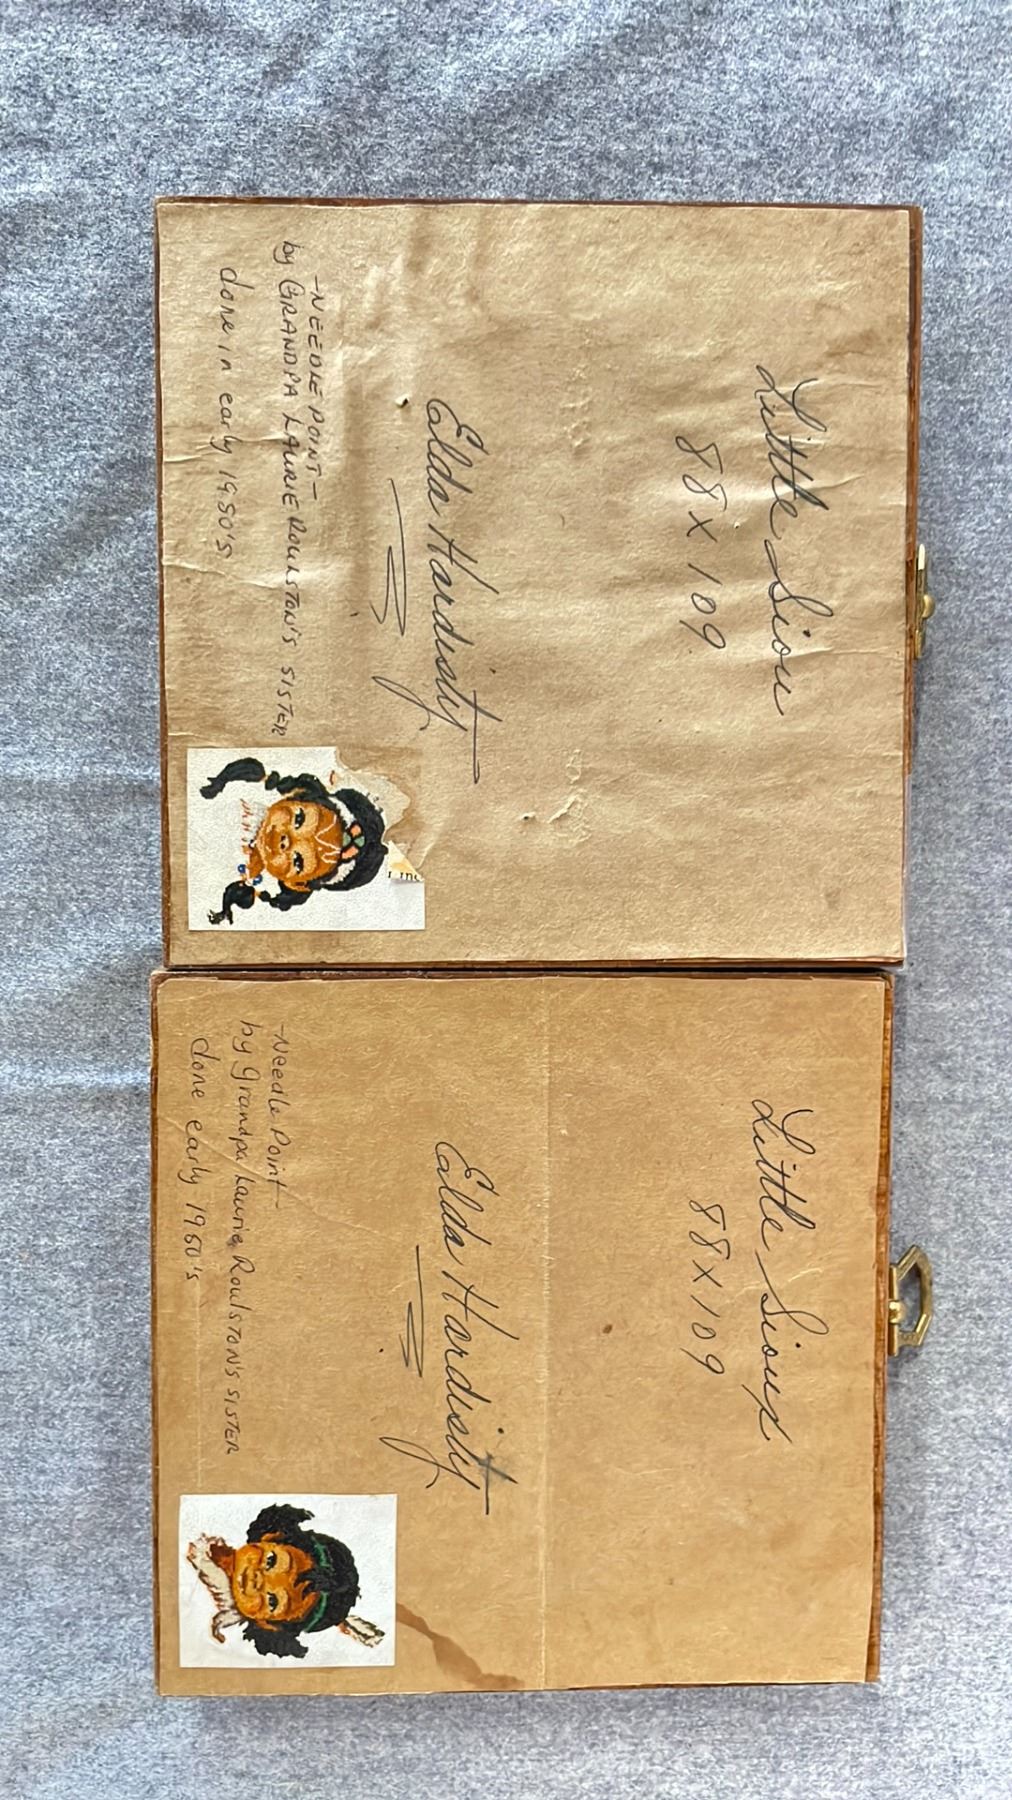 Little Siou
88 x 109
Elda Hardisty
-NEEDLE POINT-
by GRANDPA LAURIE ROULSTON'S SISTER
done in early 1950's
Little Sioux
88 x 109
Elda Hardisty
-Needle Point-
by grandpa Laurie ROULSTON'S SISTER
done early 1960's